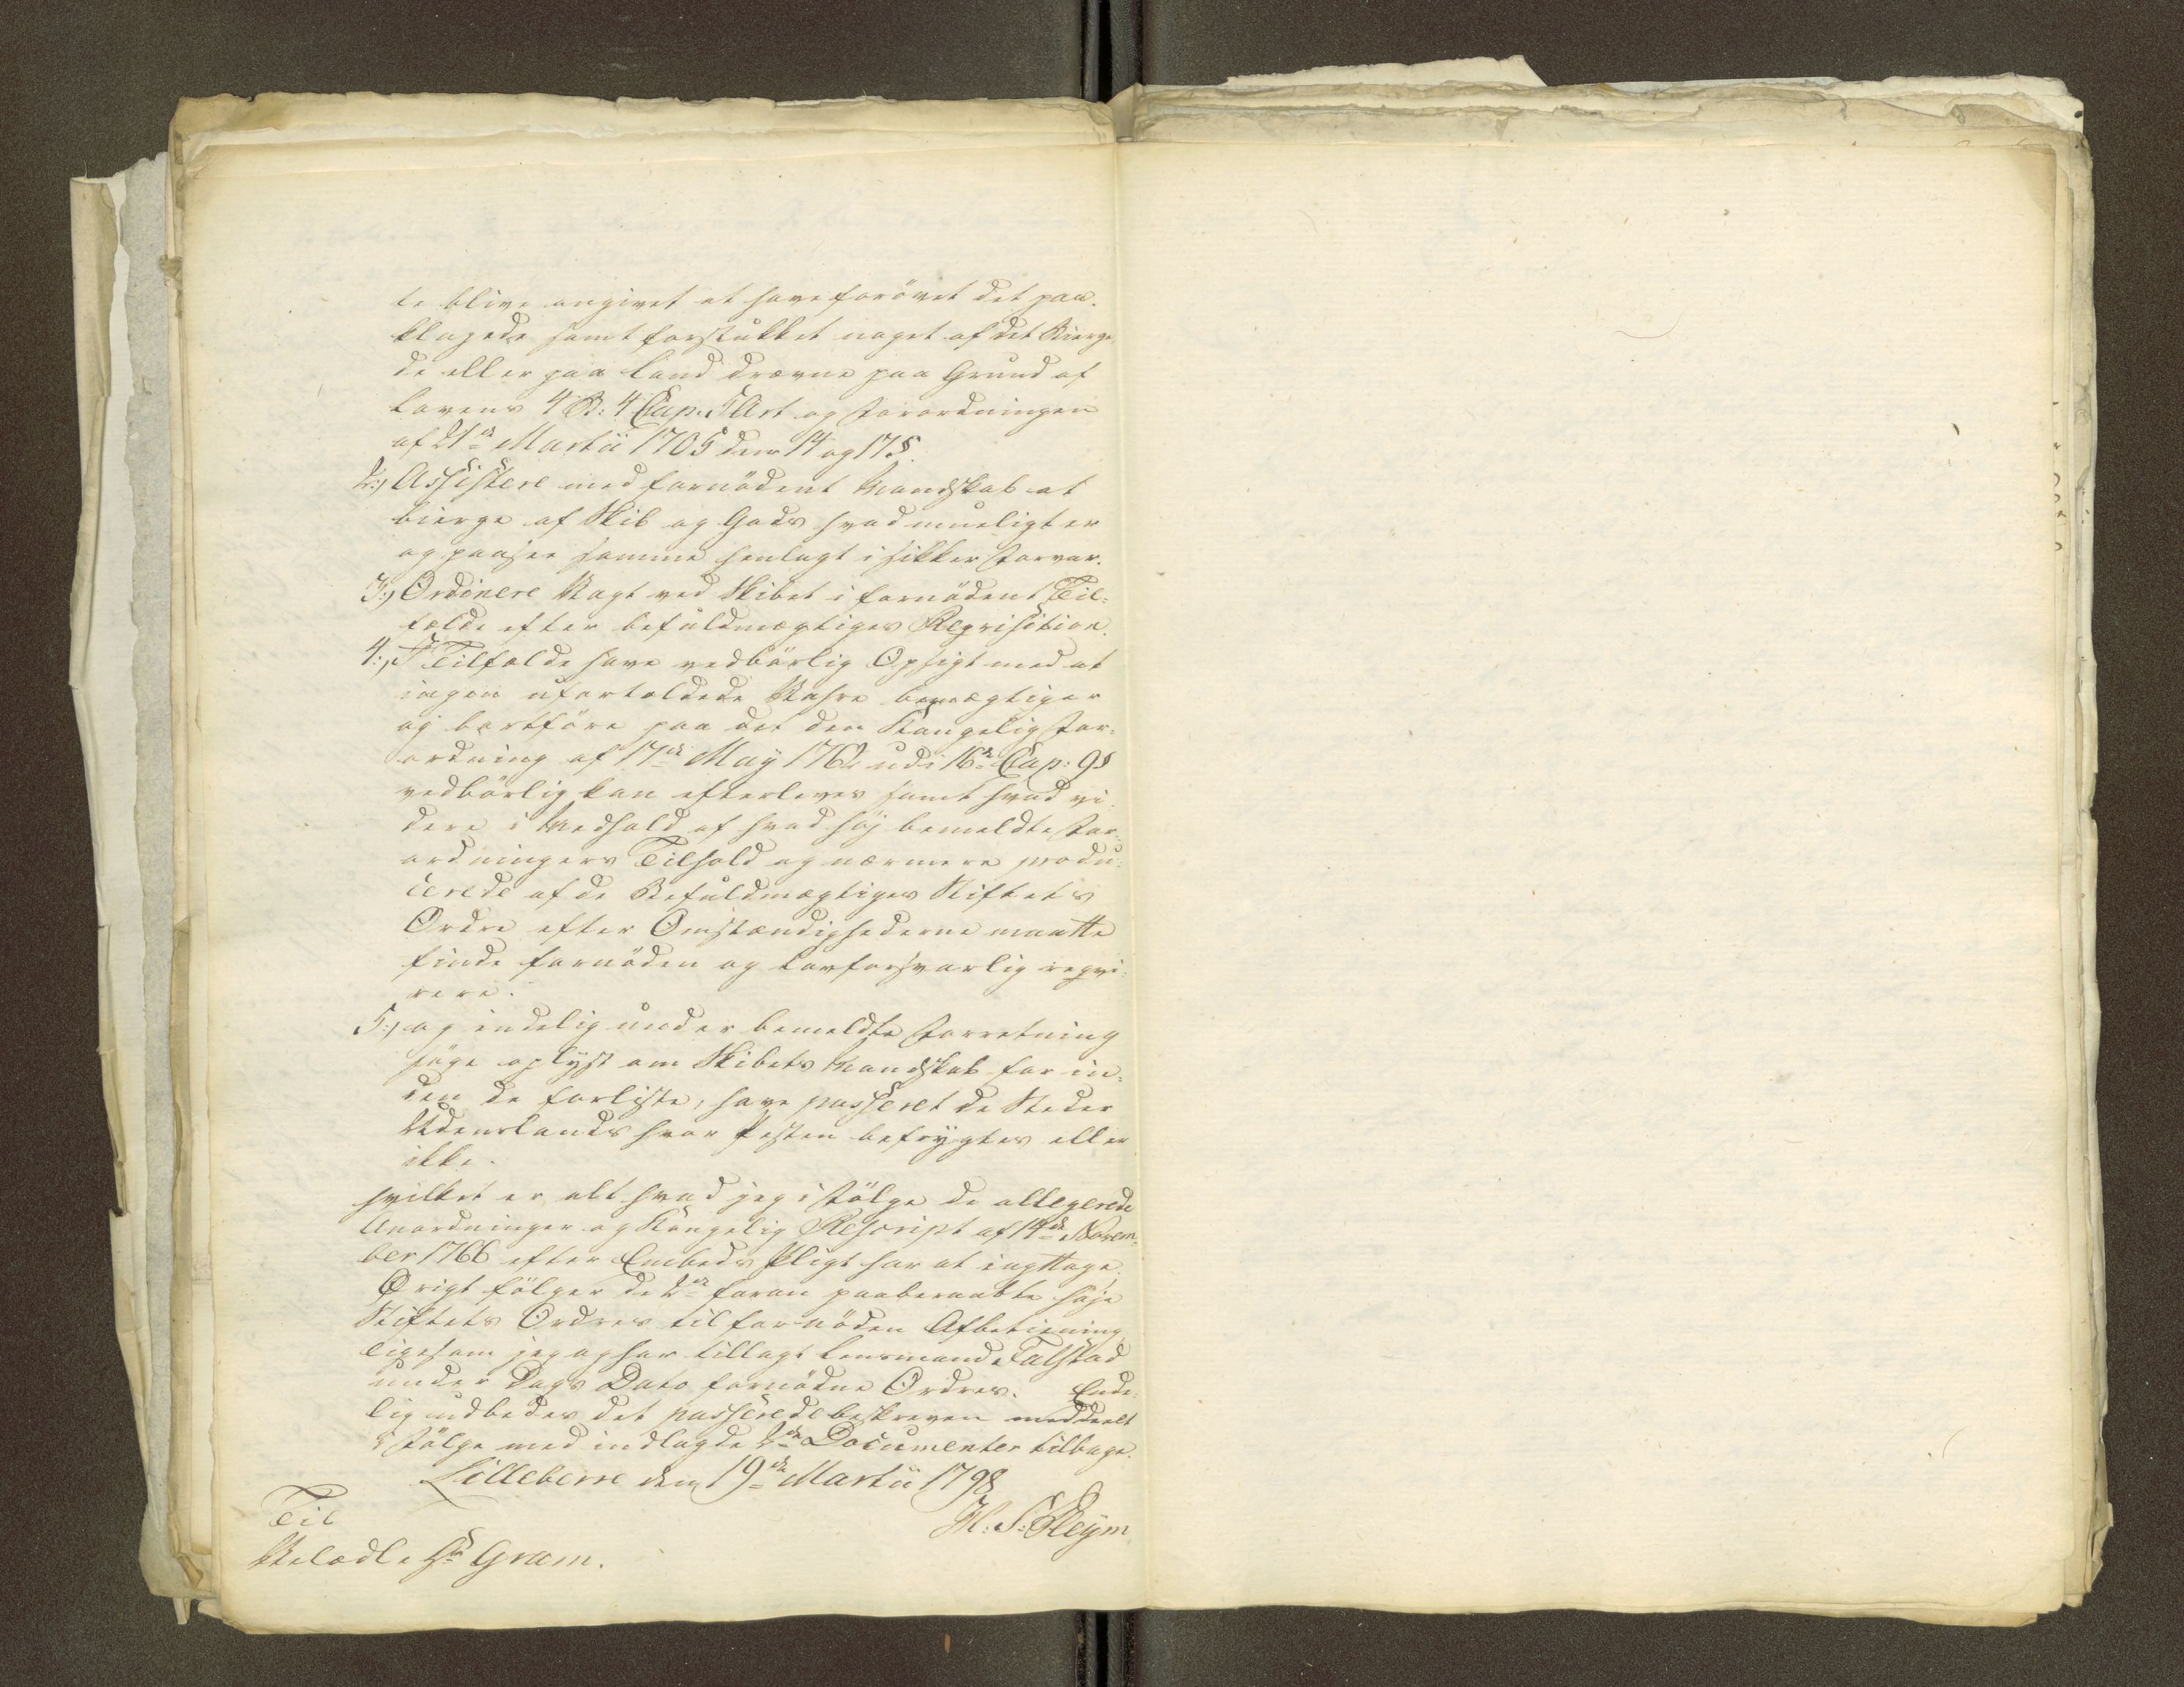 te blive angivet at have forövet det paa¬
klagede samt forstukket noget af det Bierge¬
de eller paa Land drevne paa Grund af
Lovens 4 B: 4 Cap. 5 Art og Forordningen
af 21de Martii 1705 dens 14 og 17 §.
2:, Assistere med fornödent Mandskab at
bierge af Skib og Gods hvad mueligt er
og paasee samme henlagt i sikker Forvar.
3:, Ordinere Vagt ved Skibet i fornödent Til¬
fælde efter befuldmægtiges Reqvisition.
4:, I Tilfælde have vedbörlig Opsigt med at
ingen ufortoldede Vahre bemægtiger
og bortföre paa det den Kongelig For¬
ordning af 17de May 1762 udi 16de Cap: 9 §
vedbörlig kan efterleves samt hvad vi¬
dere i Medhold af hvad höj bemeldte For¬
ordningers Tilhold og nærmere produ¬
cerede af de Befuldmægtiges Stiftets
Ordre efter Omstændighederne maatte
finde fornöden og lovforsvarlig reqvi¬
rere.
5:, og endelig under bemeldte Forretning
söge oplyst om Skibets Mandskab for in¬
den de forliste, have passeret de Steder
Udenlands hvor Pesten befrygtes eller
ikke.
hvilket er alt hvad jeg i Fölge de allegerede
Anordninger og Kongelig Rescript af 14de Novem¬
ber 1766 efter Embeds Pligt har at iagttage.
Övrigt fölger de 2de foran paaberaabte höje
Stiftets Ordres til fornöden Afbetiening
ligesom jeg og har tillagt Lensmand Talstad
under Dags Dato fornödne Ordres. Ende¬
lig udbedes det passerede beskreven meddeelt
i Fölge med indlagde 2de Documenter tilbage.
Lilleberre den 19de Martii 1798
H: S: Heÿm
Til
Velædle Hr Gram.